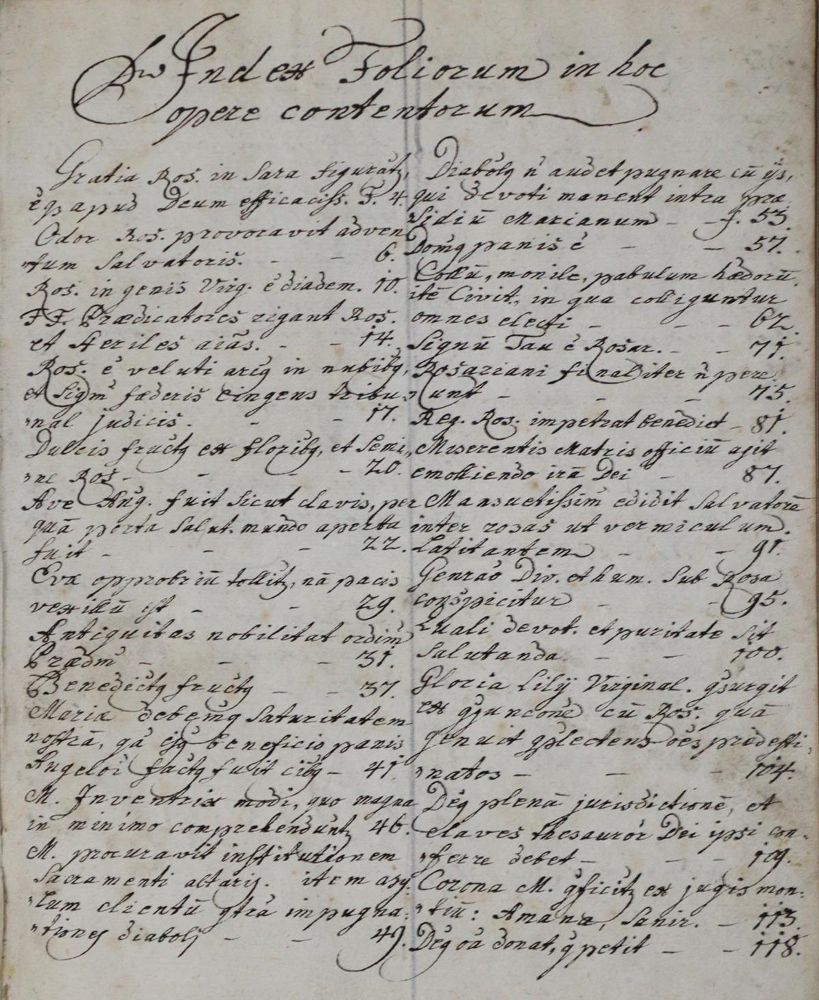 Index Foliorum in hoc
opere contentorum
Gratia Ros. in Sara figuratʒ,
èqʒ apud Deum efficaciss. F. 4.
Odor Ros. provocavit adven
tum Salvatoris. - - 6.
Ros. in genis Virg. è diadem. 10.
FF. Prædicatores rigant Ros.
et steriles aras. - - 14.
Ros. è veluti arcʒ in nubibʒ,
et Sigm̃ fæderis cingens tribu
nal judicis. - - 17.
Dulcis fructʒ ex floribʒ, et Semi,
ne Ros - - - 20.
Ave Ang. fuit sicut clavis, per
quā porta salut. mundo aperta
fuit - - - 22.
Evæ opprobriū tollitʒ, nā pacis
vexillū est - - 29.
Antiquitas nobilitat ordinē
Prædm̃ - - - 31.
Benedictʒ fructʒ - - 37.
Mariæ debemʒ saturitatem
nostrā, qā ejʒ beneficio panis
Angeloŕ factʒ fuit cibʒ - 41.
M. Inventrix modi, quo magna
in minimo comprehenduntʒ 46.
M. procuravit institutionem
Sacramenti altaris. item asy
lum clientū qtrā impugna,
tiones diaboli - - 49.
Diabolʒ ñ audet pugnare cū ijs,
qui devoti manent intra præ
sidiū Marianum - - f. 53.
Domʒ panis è - - 57.
Collū, monile, pabulum hædorū,
itē Civit, in qua colliguntur
omnes electi - - - 62.
Signū Tau è Rosar. - - 71.
Rosariani finaliter ñ pere
unt - - - 75.
Reg. Ros. impetrat benedict - 81.
Miserentis Matris officiū agit
emolliendo irā Dei - 87.
Mansuetissim̃ edidit Salvatorē
inter rosas ut vermiculum
latitantem - - 91.
Genrāo Div. et hum. Sub Rosa
conspicitur - - 95.
Quali devot. et puritate sit
salutanda. - - 100.
Gloria Lilij Virginal. qsurgit
ex qjuncone cū Ros. quā
genuit qplectens oēs prædesti,
natos - - - 104.
Deʒ plenā jurisdictionē, et
claves thesauroŕ Dei ipsi con,
ferre debet - - 109.
Corona M. qficitʒ ex jugis mon,
tiū: Amanæ, Sanir. - 113.
Deʒ oā donat, q̃ petit - - 118.